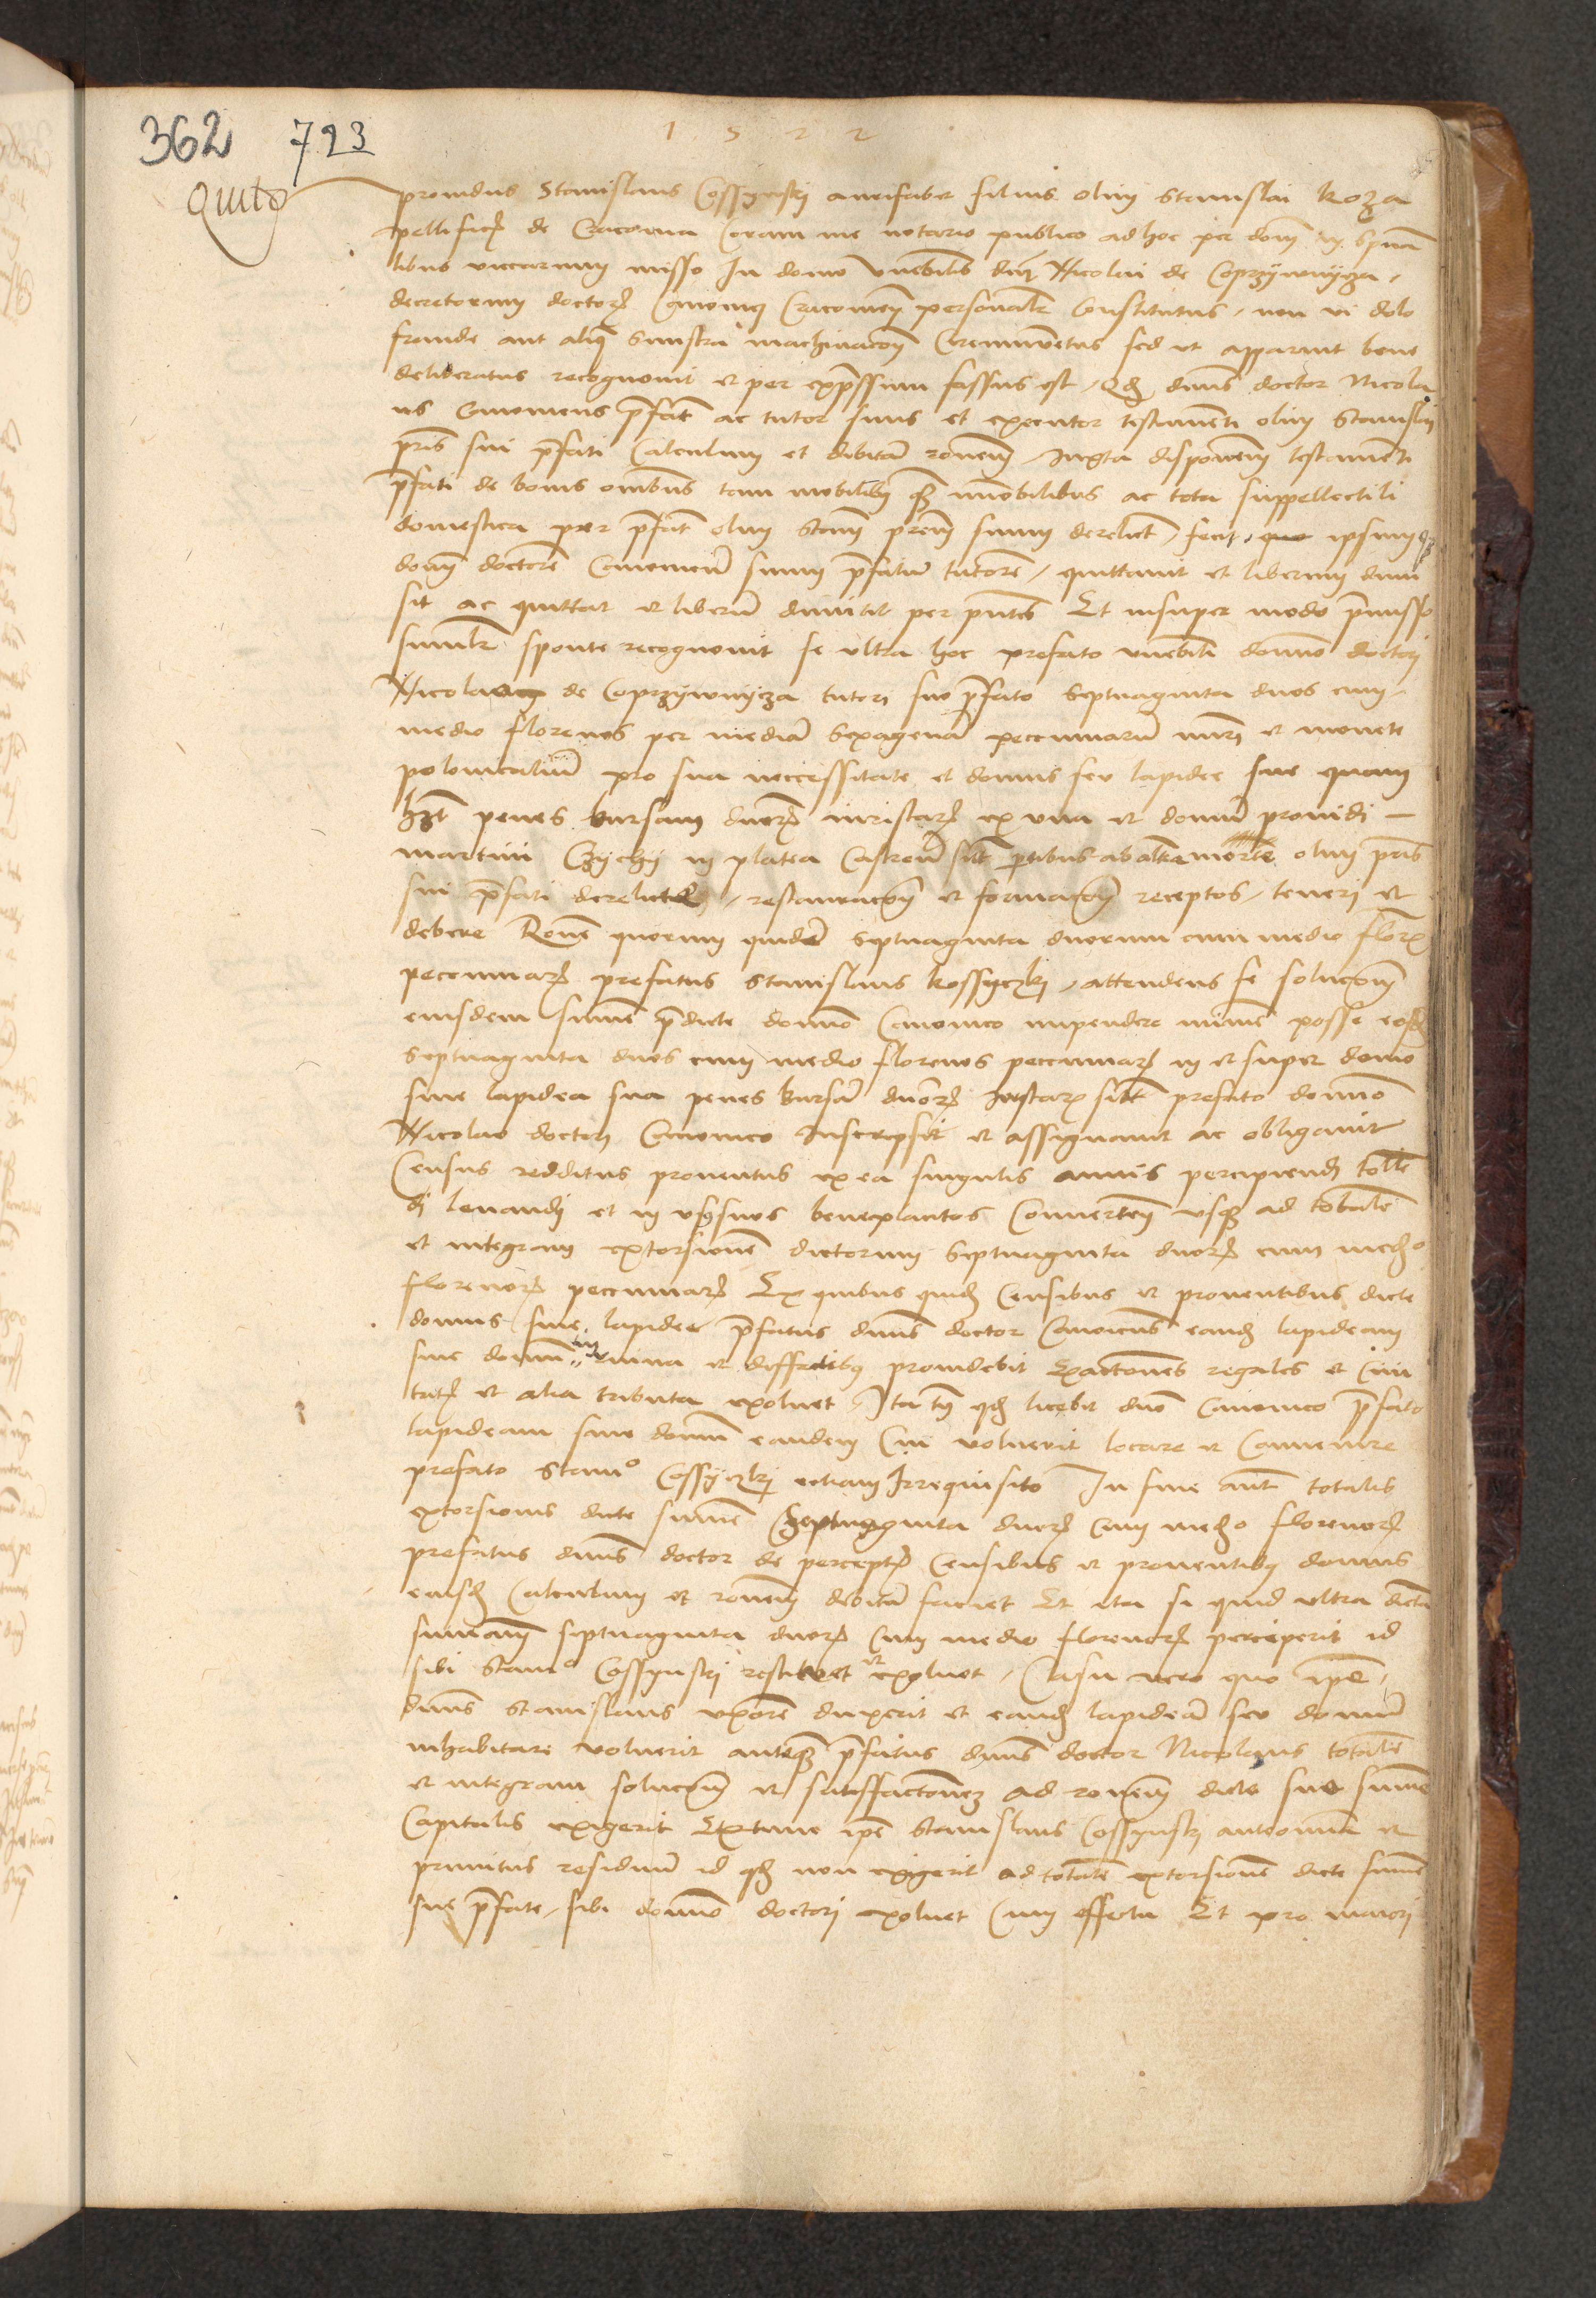 362 723
1 5 2 2
Quit
prouidus Stanislaus Cossynski aurifaber filius olim Stanislai Koza
pellificis de Cracouia Coram me notario publico ad hoc per dom in spua
libus vicarium misso In domo venebilis dni Nicolai de Coprzywnycza
decretorum doctoris Canonici Cracovien personalr Constitutus non vi dolo
fraude aut aliqua sinistra machinacoe Circumuentus sed ut apparuit bene
deliberatus recognouit et per expressum fassus est Qd dnus doctor Nicola
us Canonicus prefatus ac tutor suus et executor testamenti olim Stanislai
pris sui prefati Calculum et debitam ronem Iuxta disponem testamenti
prefati de bonis omnibus tam mobilibus quam immobilibus ac tota suppellectili
domestica per prefat olim Stani prem suum derelict fecit ipsum
dom doctorem Canonicum suum prefatum tutorem quittauit et liberum dimi
sit ac quittat et liberum dimittit per pntes Et insuper modo premisso
similr sponte recognouit se vltra hoc prefato venebili domino doctori
Nicolao de Coprzywnycza tutori suo prefato septuaginta duos cum
medio florenos per mediam sexagenam pecuniarum numi et monete
polonicalium pro sua neccessitate et domus seu lapidee sue quam
habet penes bursam dnorum iuristarum ex vna et domum prouidi
martini Czychy in platea Castren sitam partibus ab altera morte olim pris
sui prefati derelicte restauracoe et formacoe receptos teneri et
debere Rone quorum quidem septuaginta duorum cum medio floreno
pecuniarum prefatus Stanislaus kossyczki attendens se solucoem
eiusdem summe predicte domino Canonico impendere minime posse eosd
septuaginta duos cum medio florenos pecuniarum in et super domo
siue lapidea sua penes bursam dnorum Iuristarum sita prefato domino
Nicolao doctori Canonico Inscripsit et assignauit ac obligauit
Census redditus prouentus ex ea singulis annis percipiendi tolle
di leuandi et in vsus suos beneplacitos Conuertendi vsque ad totalem
et integram extorsionem dictorum septuaginta duorum cum medio
florenorum pecuniarum Ex quibus quidem Censibus et prouentibus dicte
domus siue lapidee prefatus dnus doctor Canonicus eandem lapideam
siue domum in ruina et deffectibus prouidebit Exactiones regales et Ciui
tatis et alia tributa exoluet Ita tn qd licebit dno Canonico prefato
lapideam siue domum eandem Cui voluerit locare et Conuenire
prefato Stanislao Cossyczki etiam Irrequisito In fine aut totalis
extorsionis dicte summe septuaginta duorum Cum medio florenorum
prefatus dnus doctor de perceptis Censibus et prouentibus domus
eiusdem Calculum et ronem debitam faciet Et ita si quid vltra dictam
summam septuaginta duorum Cum medio florenorum perceperit id
sibi Stanislao Cossynski restituet et exoluet Casu vero quo ipse
dnus Stanislaus vxorem duxerit et eandem lapideam seu domum
inhabitare voluerit antequam prefatus dnus doctor Nicolaus totalem
et integram solucoem et satisfactionem ad ronem dicte sue summe
Capitalis exigerit Extunc ipse Stanislaus Cossynski anteomnia et
primitus residuum id qd non exigerit ad totalem extorsionem dicte summe
sue prefate sibi domino doctori exoluet Cum effectu Et pro maiori